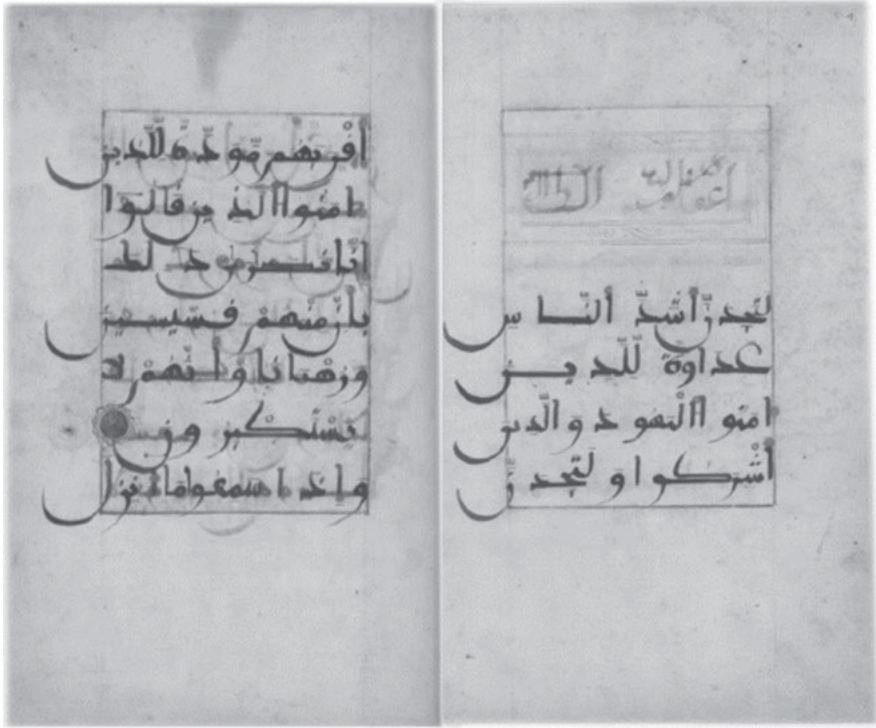 لَتَجِدَنَّ أَشَدَّ ٱلنَّاسِ
عَدَاوَةً لِّلَّذِينَ
ءَامَنُوا ٱلْيَهُودَ وَٱلَّذِينَ
أَشْرَكُوا وَلَتَجِدَنَّ
أَقْرَبَهُم مَّوَدَّةً لِّلَّذِينَ
ءَامَنُوا ٱلَّذِينَ قَالُوا
إِنَّا نَصَٰرَىٰ ذَٰلِكَ
بِأَنَّ مِنْهُمْ قِسِّيسِينَ
وَرُهْبَانًا وَأَنَّهُمْ لَا
يَسْتَكْبِرُونَ
وَإِذَا سَمِعُوا مَا أُنزِلَ